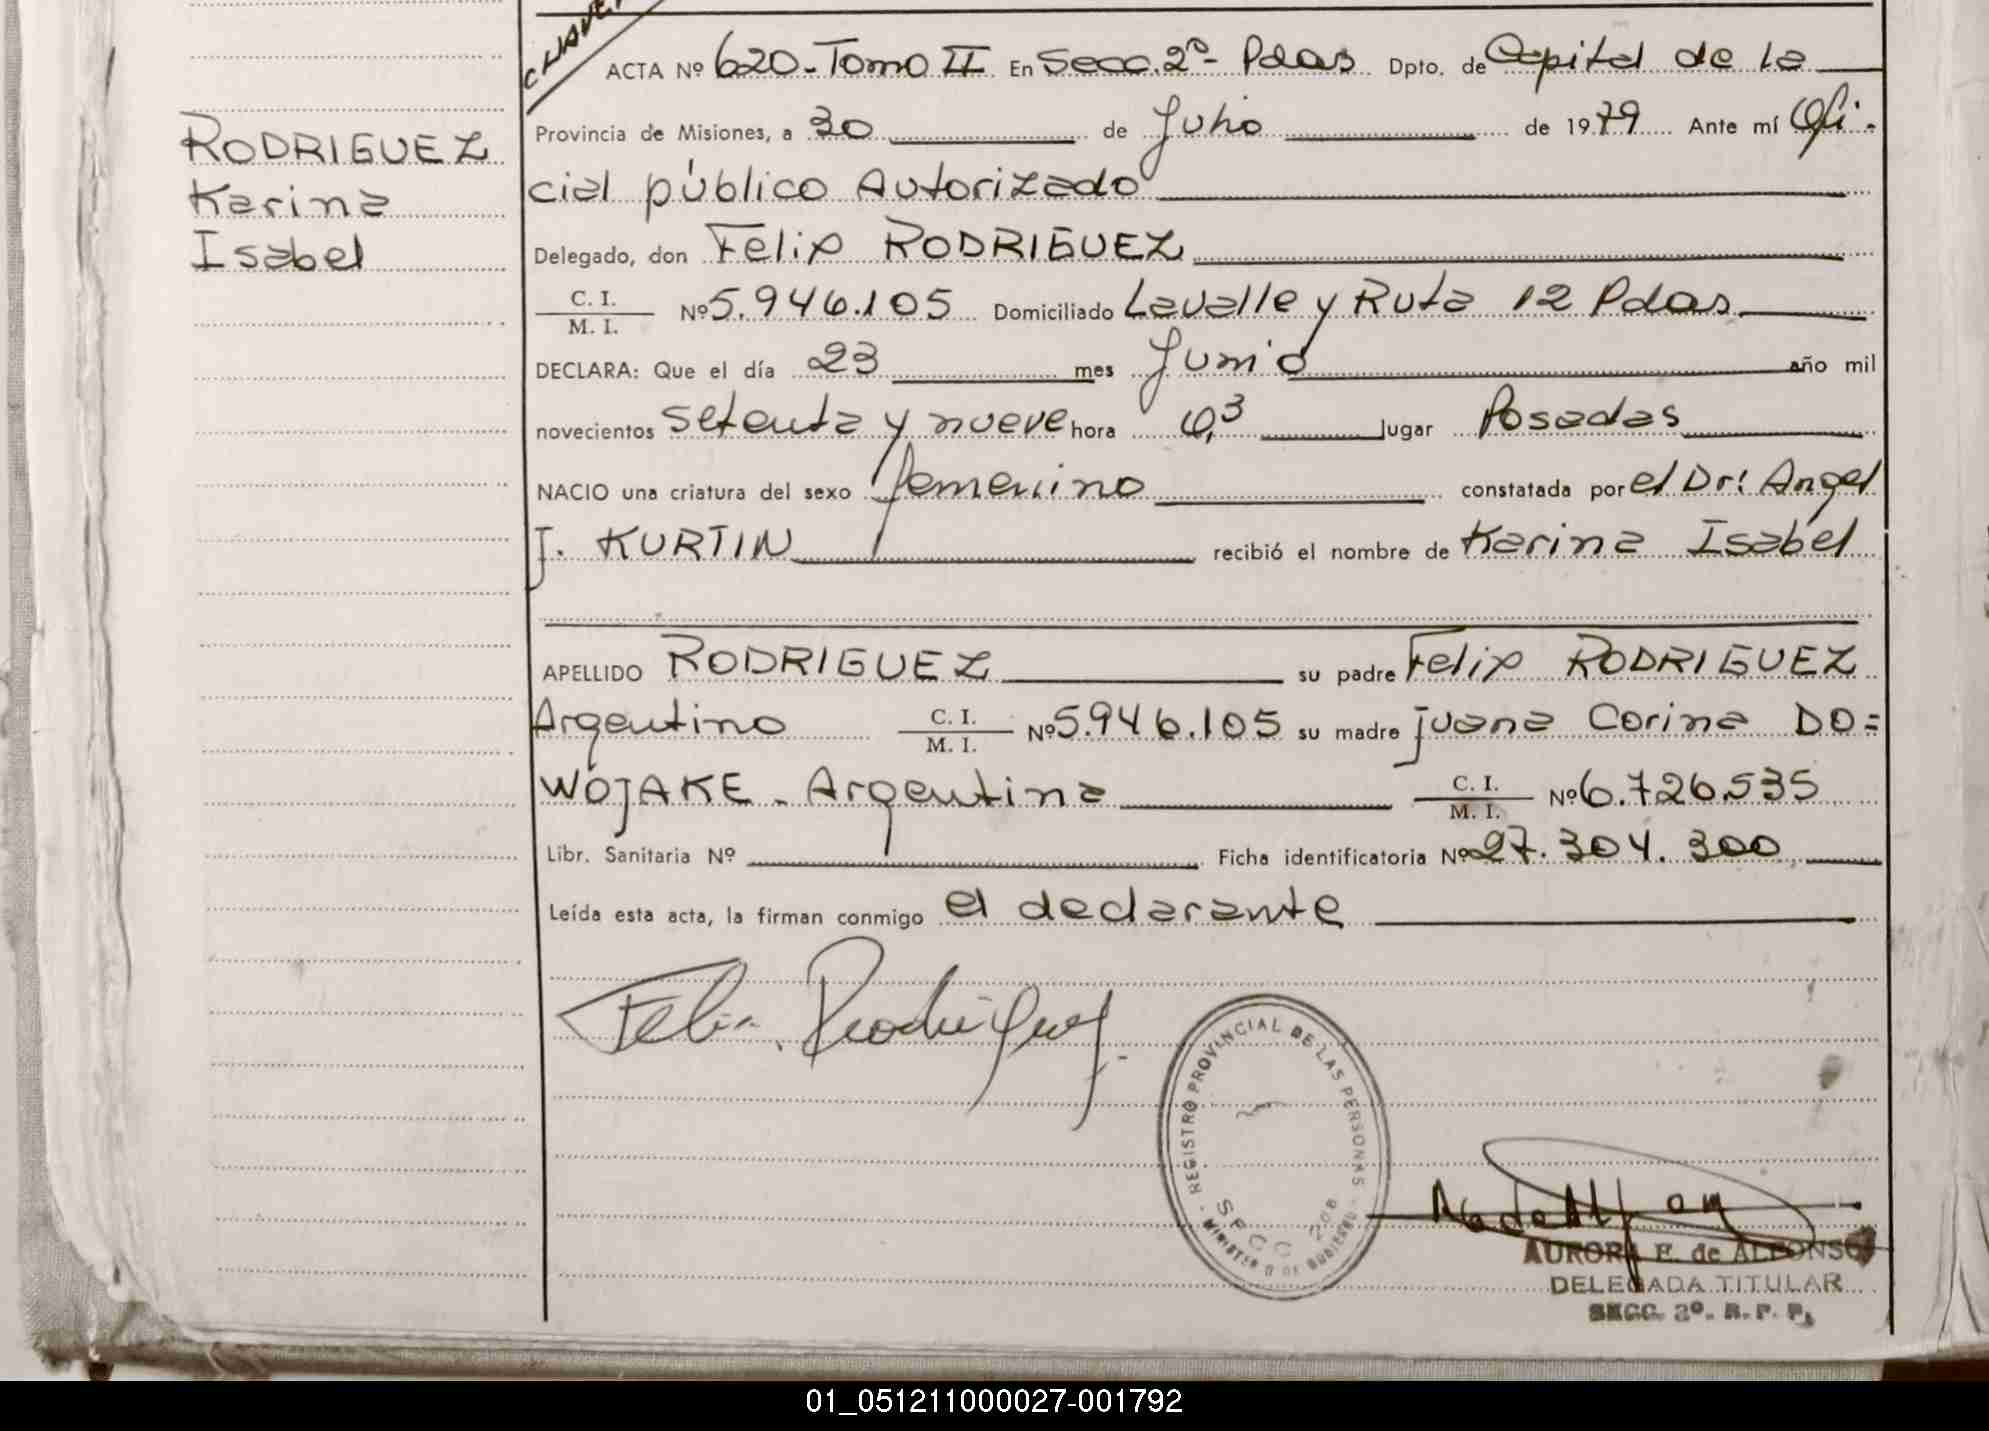 CHAVE
ACTA Nº 620-Tomo II En Secc. 2ª- Pdas Dpto. de Capital de la
Provincia de Misiones, a 30 de Julio de 1979 Ante mí Ofi-
cial público Autorizado
RODRIGUEZ
Karina
Isabel
Delegado, don Felix RODRIGUEZ
C. I.
M. I.
Nº 5.946.105 Domiciliado Lavalle y Ruta 12 Pdas
DECLARA: Que el día 23 mes Junio año mil
novecientos setenta y nueve hora lugar Posadas
NACIO una criatura del sexo femenino constatada por el Dr: Angel
J. KURTIN recibió el nombre de Karina Isabel
APELLIDO RODRIGUEZ su padre Felix RODRIGUEZ
Argentino C. I. M. I. Nº 5.946.105 su madre Juana Corina DO=
WOJAKE - Argentina C. I. M. I. Nº 6.726.535
Libr. Sanitaria Nº Ficha identificatoria Nº 27.304.300
Leída esta acta, la firman conmigo el declarante
Felix Rodriguez
REGISTRO PROVINCIAL DE LAS PERSONAS
MINISTERIO DE GOBIERNO
SECC
AURORA E. de ALFONSO
DELEGADA TITULAR
SECC. 2º. R. P. P.
01_051211000027-001792